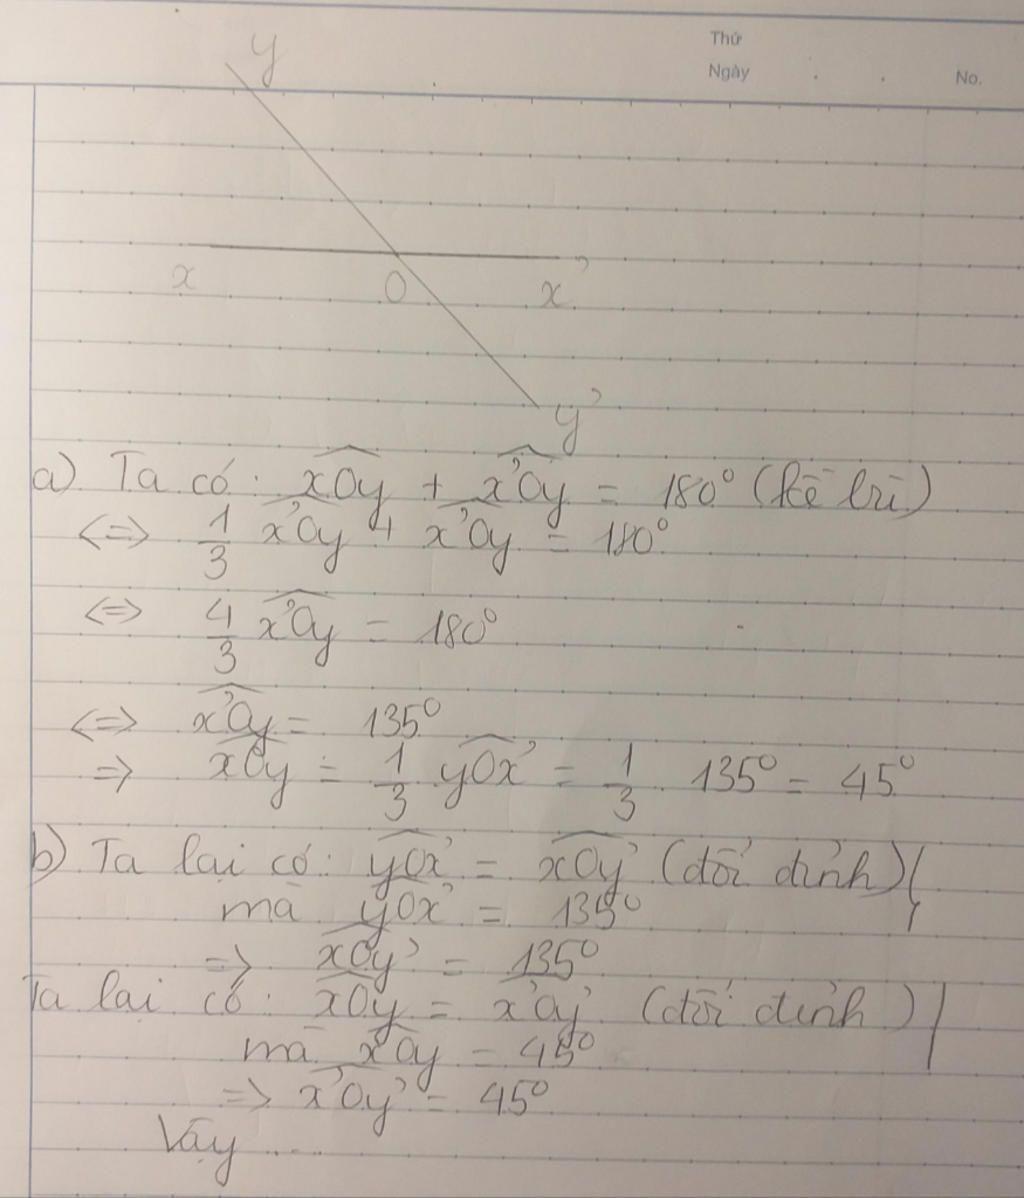 Thứ
Ngày . . No.
y
x O x'
y'
a) Ta có: xOy + x'Oy = 180° (kề bù)
<=> 1/3 x'Oy + x'Oy = 180°
<=> 4/3 x'Oy = 180°
<=> x'Oy = 135°
=> xOy = 1/3 yOx' = 1/3 . 135° = 45°
b) Ta lại có: yOx' = xOy' (đối đỉnh)
mà yOx' = 135°
=> xOy' = 135°
Ta lại có: xOy = x'Oy' (đối đỉnh)
mà xOy = 45°
=> x'Oy' = 45°
Vậy ....